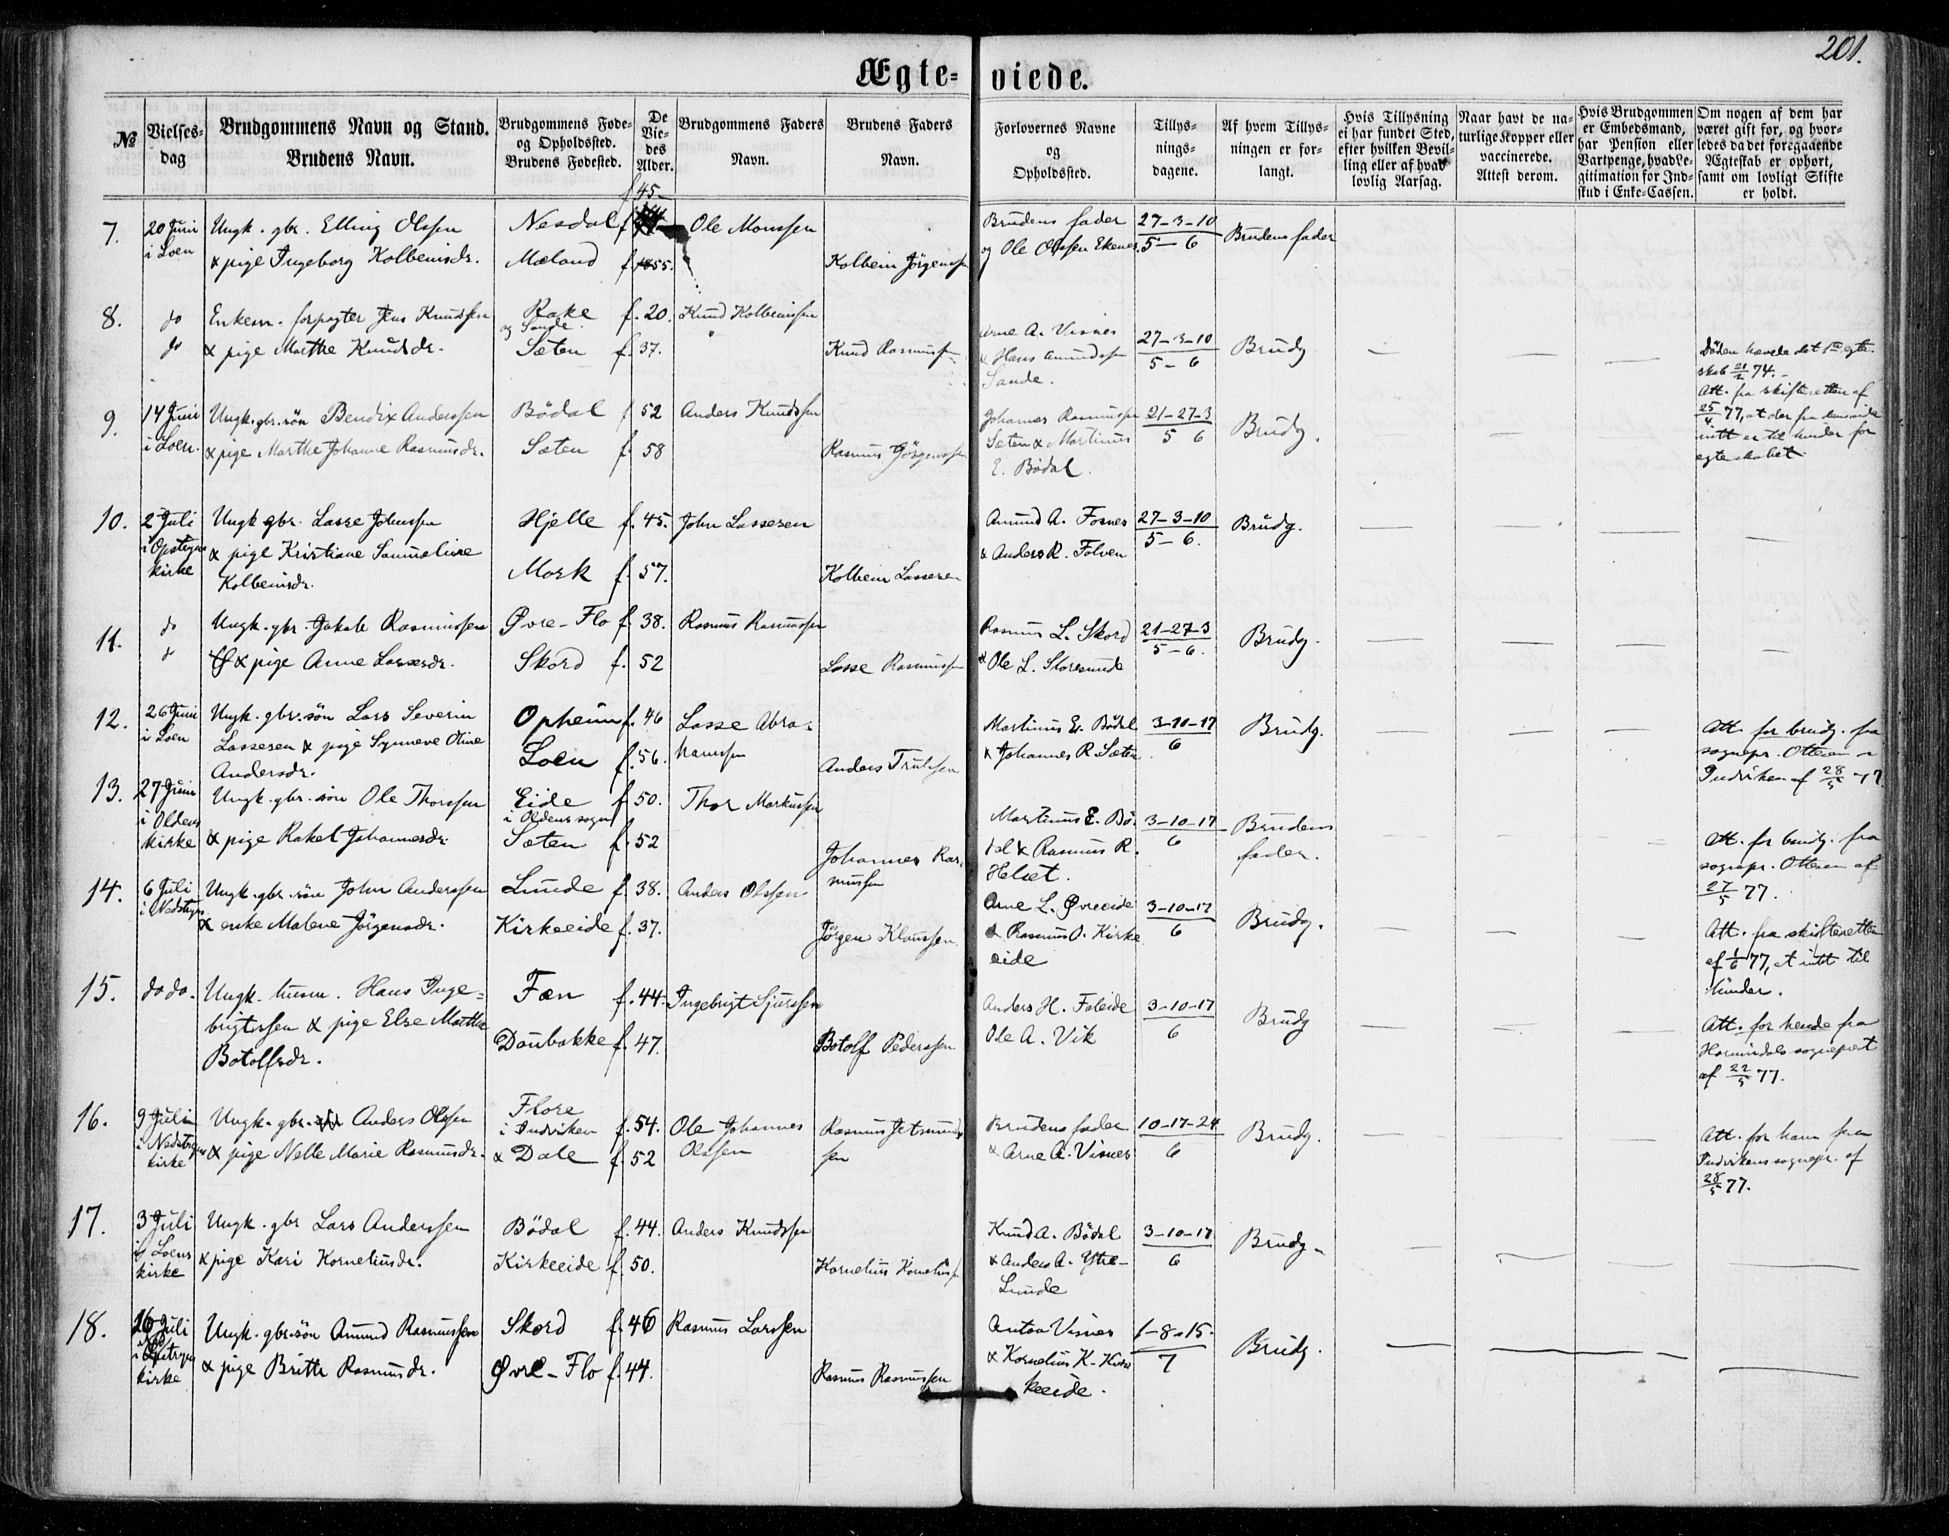 201.
Ægte-viede.
№
Vielses-dag
Brudgommens Navn og Stand.
Brudens Navn.
Brudgommens Føde-
og Opholdssted.
Brudens Fødested.
De
Vie-
des
Alder.
Brudgommens Faders
Navn.
Brudens Faders
Navn.
Forlovernes Navne
og
Opholdssted.
Tillys-
nings-
dagene.
Af hvem Tillys-
ningen er for-
langt.
Hvis Tillysning
ei har fundet Sted,
efter hvilken Bevil-
ling eller af hvad
lovlig Aarsag.
Naar havt de na-
turlige Kopper eller
vaccinerede.
Attest derom.
Hvis Brudgommen
er Embedsmand,
har Pension eller
Vartpenge, hvad Le-
gitimation for Ind-
skud i Enke-Cassen.
Om nogen af dem har
været gift før, og hvor-
ledes da det foregaaende
Ægteskab er ophørt,
samt om lovligt Skifte
er holdt.
7. 20 Juni i Loen
Ungk. gbr. Elling Olssen
& pige Ingeborg Kolbeinsdr.
Nesdal f. 45
Mæland f. 55.
Ole Monssen
Kolbein Jörgenssen
Brudens fader
og Ole Olssen Ekenes.
27-3-10
5-6
Brudens fader
8. do do
Enkem. forpagter Jens Knudsen
& pige Marthe Knudsdr.
Rake og Sande f. 20.
Sæten f. 37.
Knud Kolbeinssen
Knud Rasmussen
Arne A. Visnes
& Hans Amundssen
Sande.
27-3-10
5-6
Brudg
Döden hævede det 1ste egte-
skab 21/2 74.-
Att. fra skifteretten af
25/4 77, at der fra dens side
intt er til hinder for
egteskabet.
9. 14 Juni i Loen.
Ungk. gbr. sön Bendix Anderssen
& pige Marthe Johanne Rasmusdr.
Bödal f 52
Sæten f. 58
Anders Knudssen
Rasmus Jörgenssen
Johannes Rasmussen
Sæten & Martinus
E. Bödal.
21-27-3
5 6
Brudg.
10. 2 Juli i Opstryns kirke
Ungk gbr. Lasse Johnssen
& pige Kristiane Sammeline
Kolbeinsdr.
Hjelle f. 45.
Mork f. 57.
John Lassesen
Kolbein Lassesen
Amund A. Fosnes
& Anders R. Folven
27-3-10
5-6.
Brudg.
11. do do
Ungk. gbr. Jakob Rasmussen
& pige Anne Lassesdr.
Øvre-Flo f. 38.
Skord f. 52
Rasmus Rasmussen
Lasse Rasmussen
Rasmus L. Skord
& Ole L. Storesunde
21-27-3
5-6.
Brudg.
12. 26 Juni i Loen
Ungk. gbr. sön Lars Severin
Lassesen & pige Synneve Oline
Andersdr.
Opheim f. 46
Loen f. 56.
Lasse Abra-
hamsen
Anders Trulssen
Martinus E. Bödal
& Johannes R. Sæten.
3-10-17
6
Brudg.
Att. for brudg. fra
sognepr. Ottesen i
Indviken af 28/5 77
13. 27 Juni i Oldens kirke
Ungk. gbr. sön Ole Thorssen
& pige Rakel Johannesdr.
Eide i Oldens sogn f. 50.
Sæten f. 52
Thor Markussen
Johannes Ras-
mussen
Martinus E. Bö-
dal & Rasmus R.
Helset.
3-10-17
6
Brudens
fader.
Att. for brudg. fra
sognepr. Ottesen af
27/5 77.
14. 6 Juli i Nedstryns
Ungk. gbr. sön John Anderssen
& enke Malene Jörgensdr.
Lunde f. 38.
Kirkeeide f. 37.
Anders Olssen
Jörgen Klaussen
Arne L. Øvreeide
& Rasmus O. Kirke
eide
3-10-17
6
Brudg.
Att. fra skifteretten
af 1/6 77, at intt til
hinder.
15. do do.
Ungk. husm. Hans Inge-
brigtssen & pige Else Marthe
Botolfsdr.
Fæn f. 44.
Doubakke f. 47.
Ingebrigt Sjurssen
Botolf Pederssen
Anders H. Faleide
Ole A. Vik
3-10-17
6
Brudg
Att. for hende fra
Hornindals sognepræst
af 22/5 77.
16. 9 Juli i Nedstryns kirke
Ungk. gbr. Anders Olssen
& pige Nelle Marie Rasmusdr.
Flore i Indviken f. 54.
& Dale f. 52
Ole Johannes
Olssen
Rasmus Jetmunds
sen
Brudens fader
& Arne A. Visnes
10-17-24
6
Brudg.
Att. for ham fra
Indvikens sognepr. af
28/5 77.
17. 3 Juli i Loens kirke
Ungk. gbr Lars Anderssen
& pige Kari Korneliusdr.
Bödal f. 44.
Kirkeeide f. 50.
Anders Knudssen
Kornelius Korneliussen
Knud A. Bödal
& Anders A. Ytre-
Lunde
3-10-17
6
Brudg.
18. 16 Juli i Nedstryns kirke
Ungk. gbr. sön Amund Rasmussen
& pige Brithe Rasmusdr.
Skord f. 46
Øvre-Flo f. 44.
Rasmus Larssen
Rasmus Rasmussen
Anton Visnes
& Kornelius K. Kir-
keeide.
1-8-15.
7
Brudg.